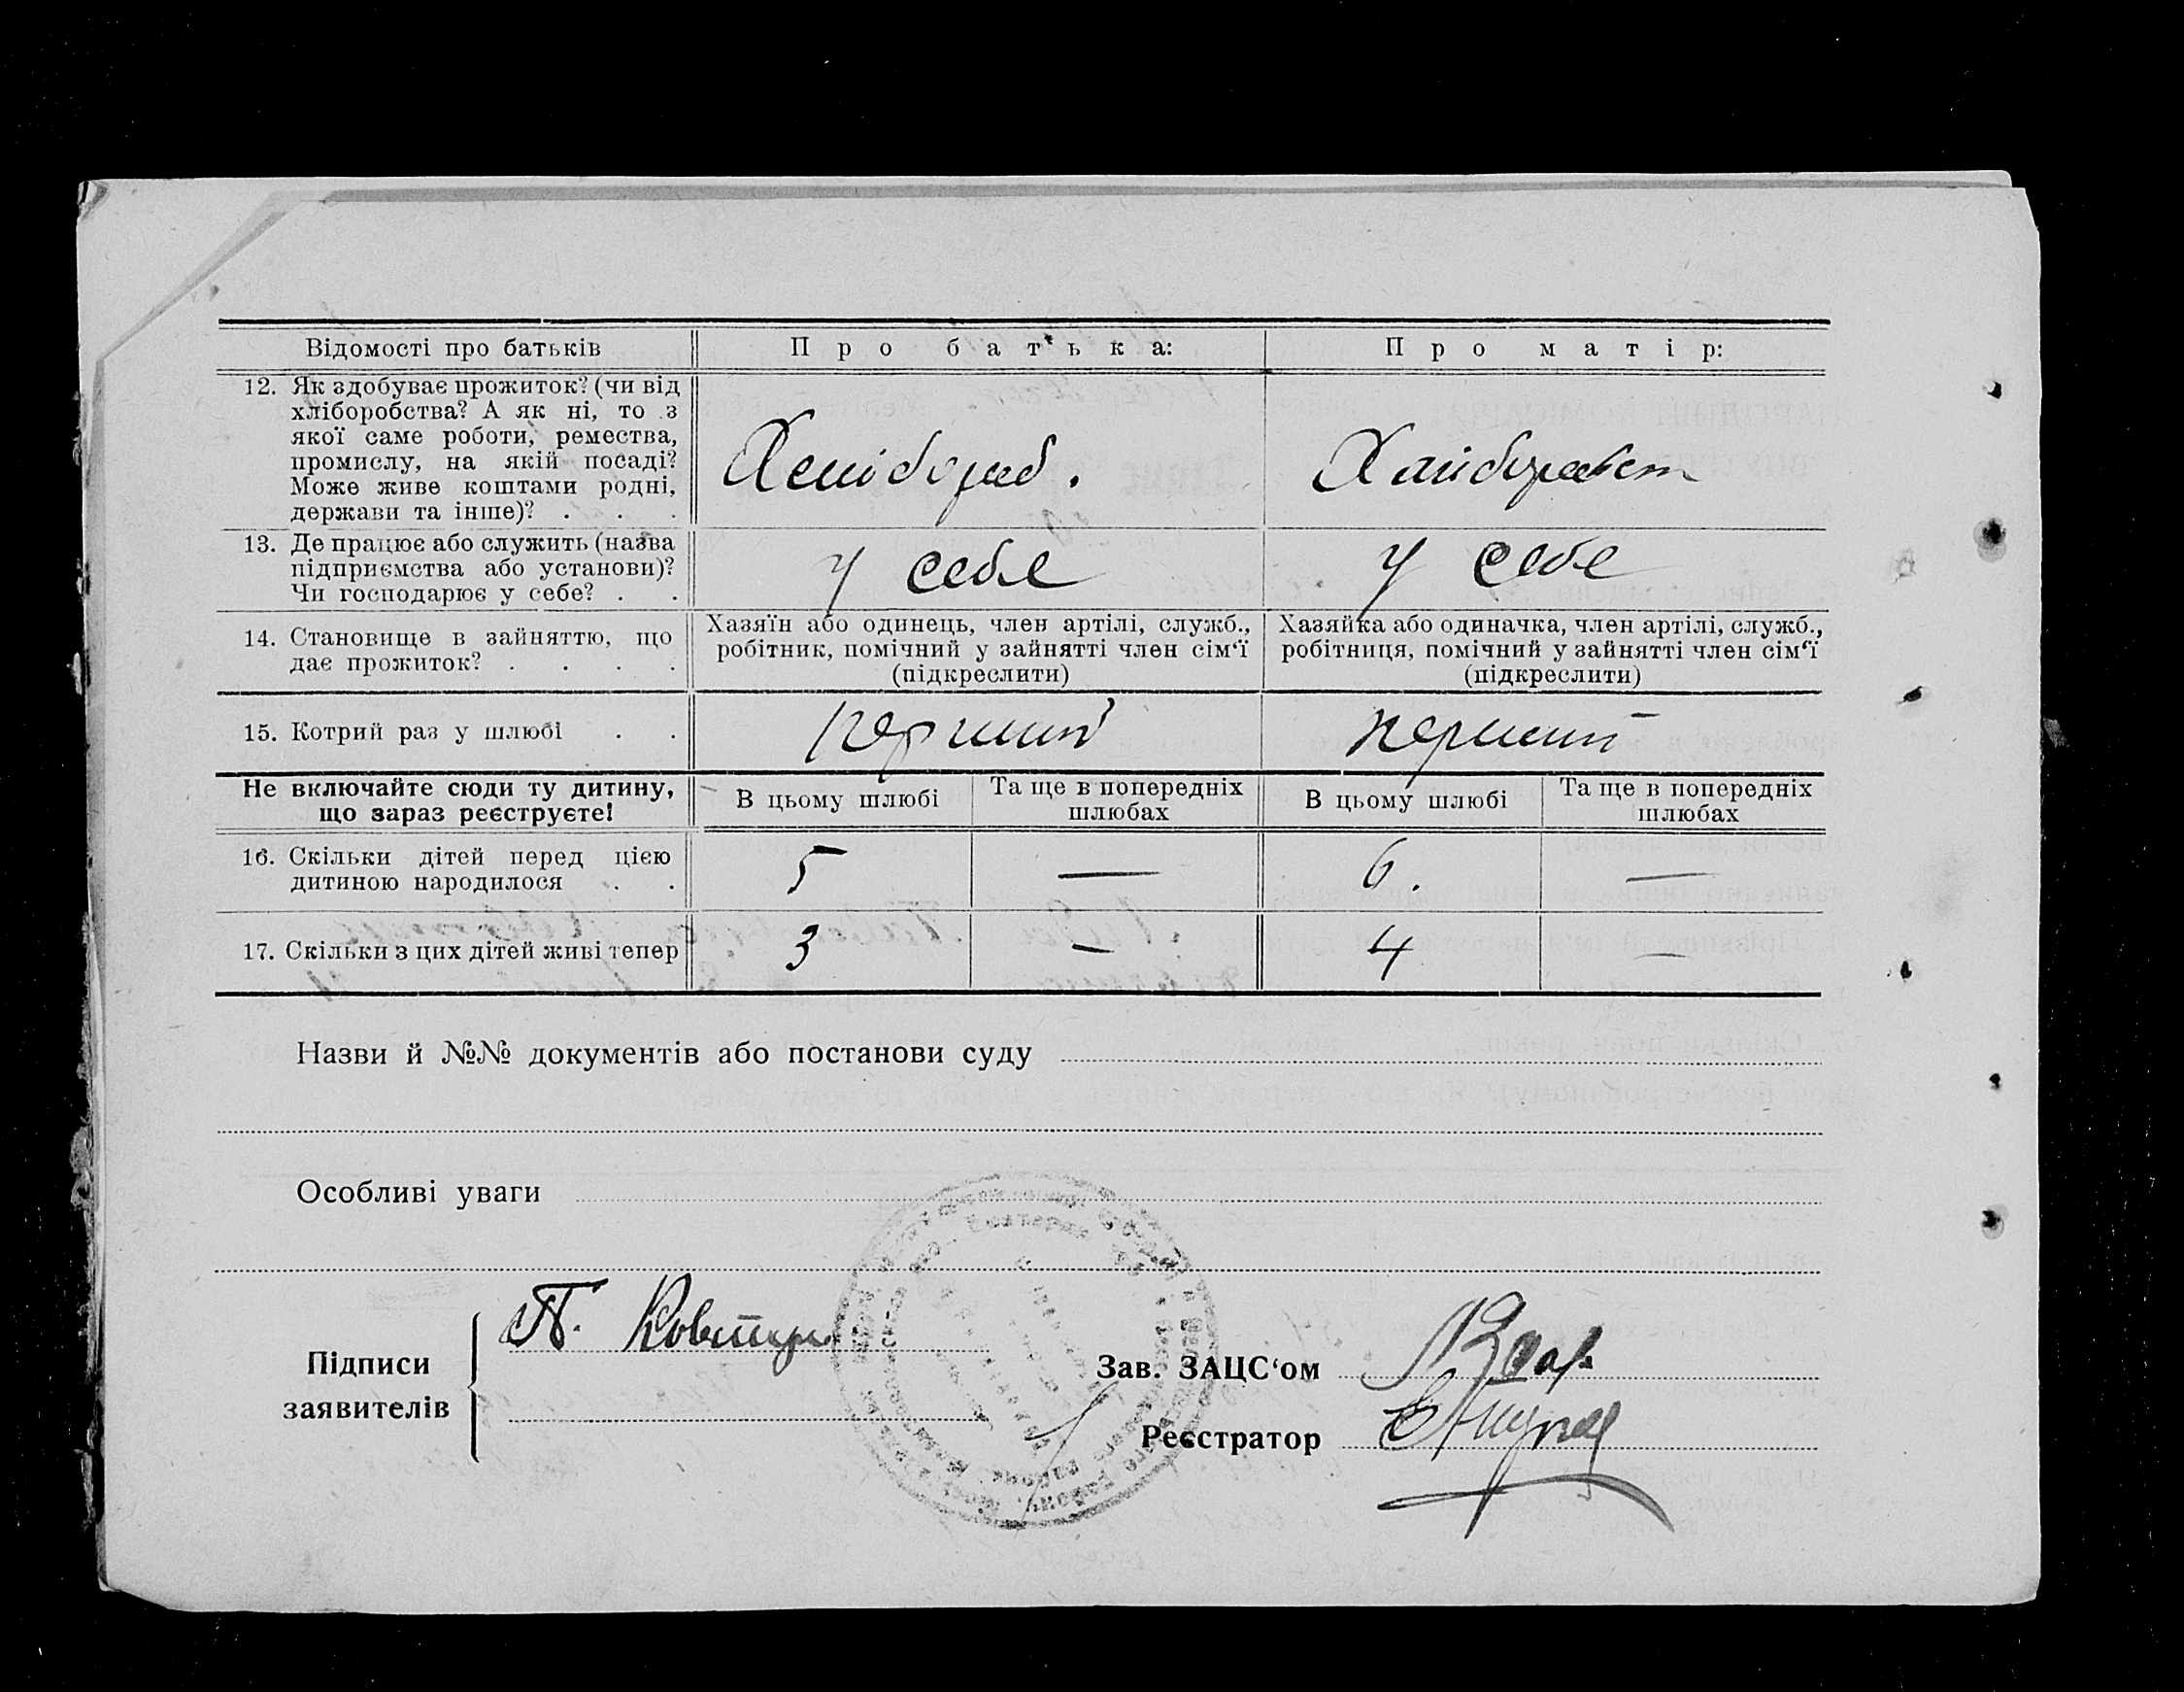 Відомості про батьків
Про батька:
Про матір:
12. Як здобуває прожиток? (чи від
хліборобства? А як ні, то з
якої саме роботи, ремества,
промислу, на якій посаді?
Може живе коштами родні,
держави та інше)? . . .
13. Де працює або служить (назва
підприємства або установи)?
Чи господарює у себе? . .
у себе
у себе
14. Становище в зайняттю, що
дає прожиток? . . . .
Хазяїн або одинець, член артілі, служб.,
робітник, помічний у зайнятті член сім‘ї
(підкреслити)
Хазяйка або одиначка, член артілі, служб.,
робітниця, помічний у зайнятті член сім‘ї
(підкреслити)
15. Котрий раз у шлюбі . .
перший
перший
Не включайте сюди ту дитину,
що зараз реєструєте!
В цьому шлюбі
Та ще в попередніх
шлюбах
В цьому шлюбі
Та ще в попередніх
шлюбах
16. Скільки дітей перед цією
дитиною народилося . .
5
—
6.
—
17. Скільки з цих дітей живі тепер
3
—
4
—
Назви й №№ документів або постанови суду
Особливі уваги
Підписи
заявителів
П.
Зав. ЗАЦС‘ом
Реєстратор